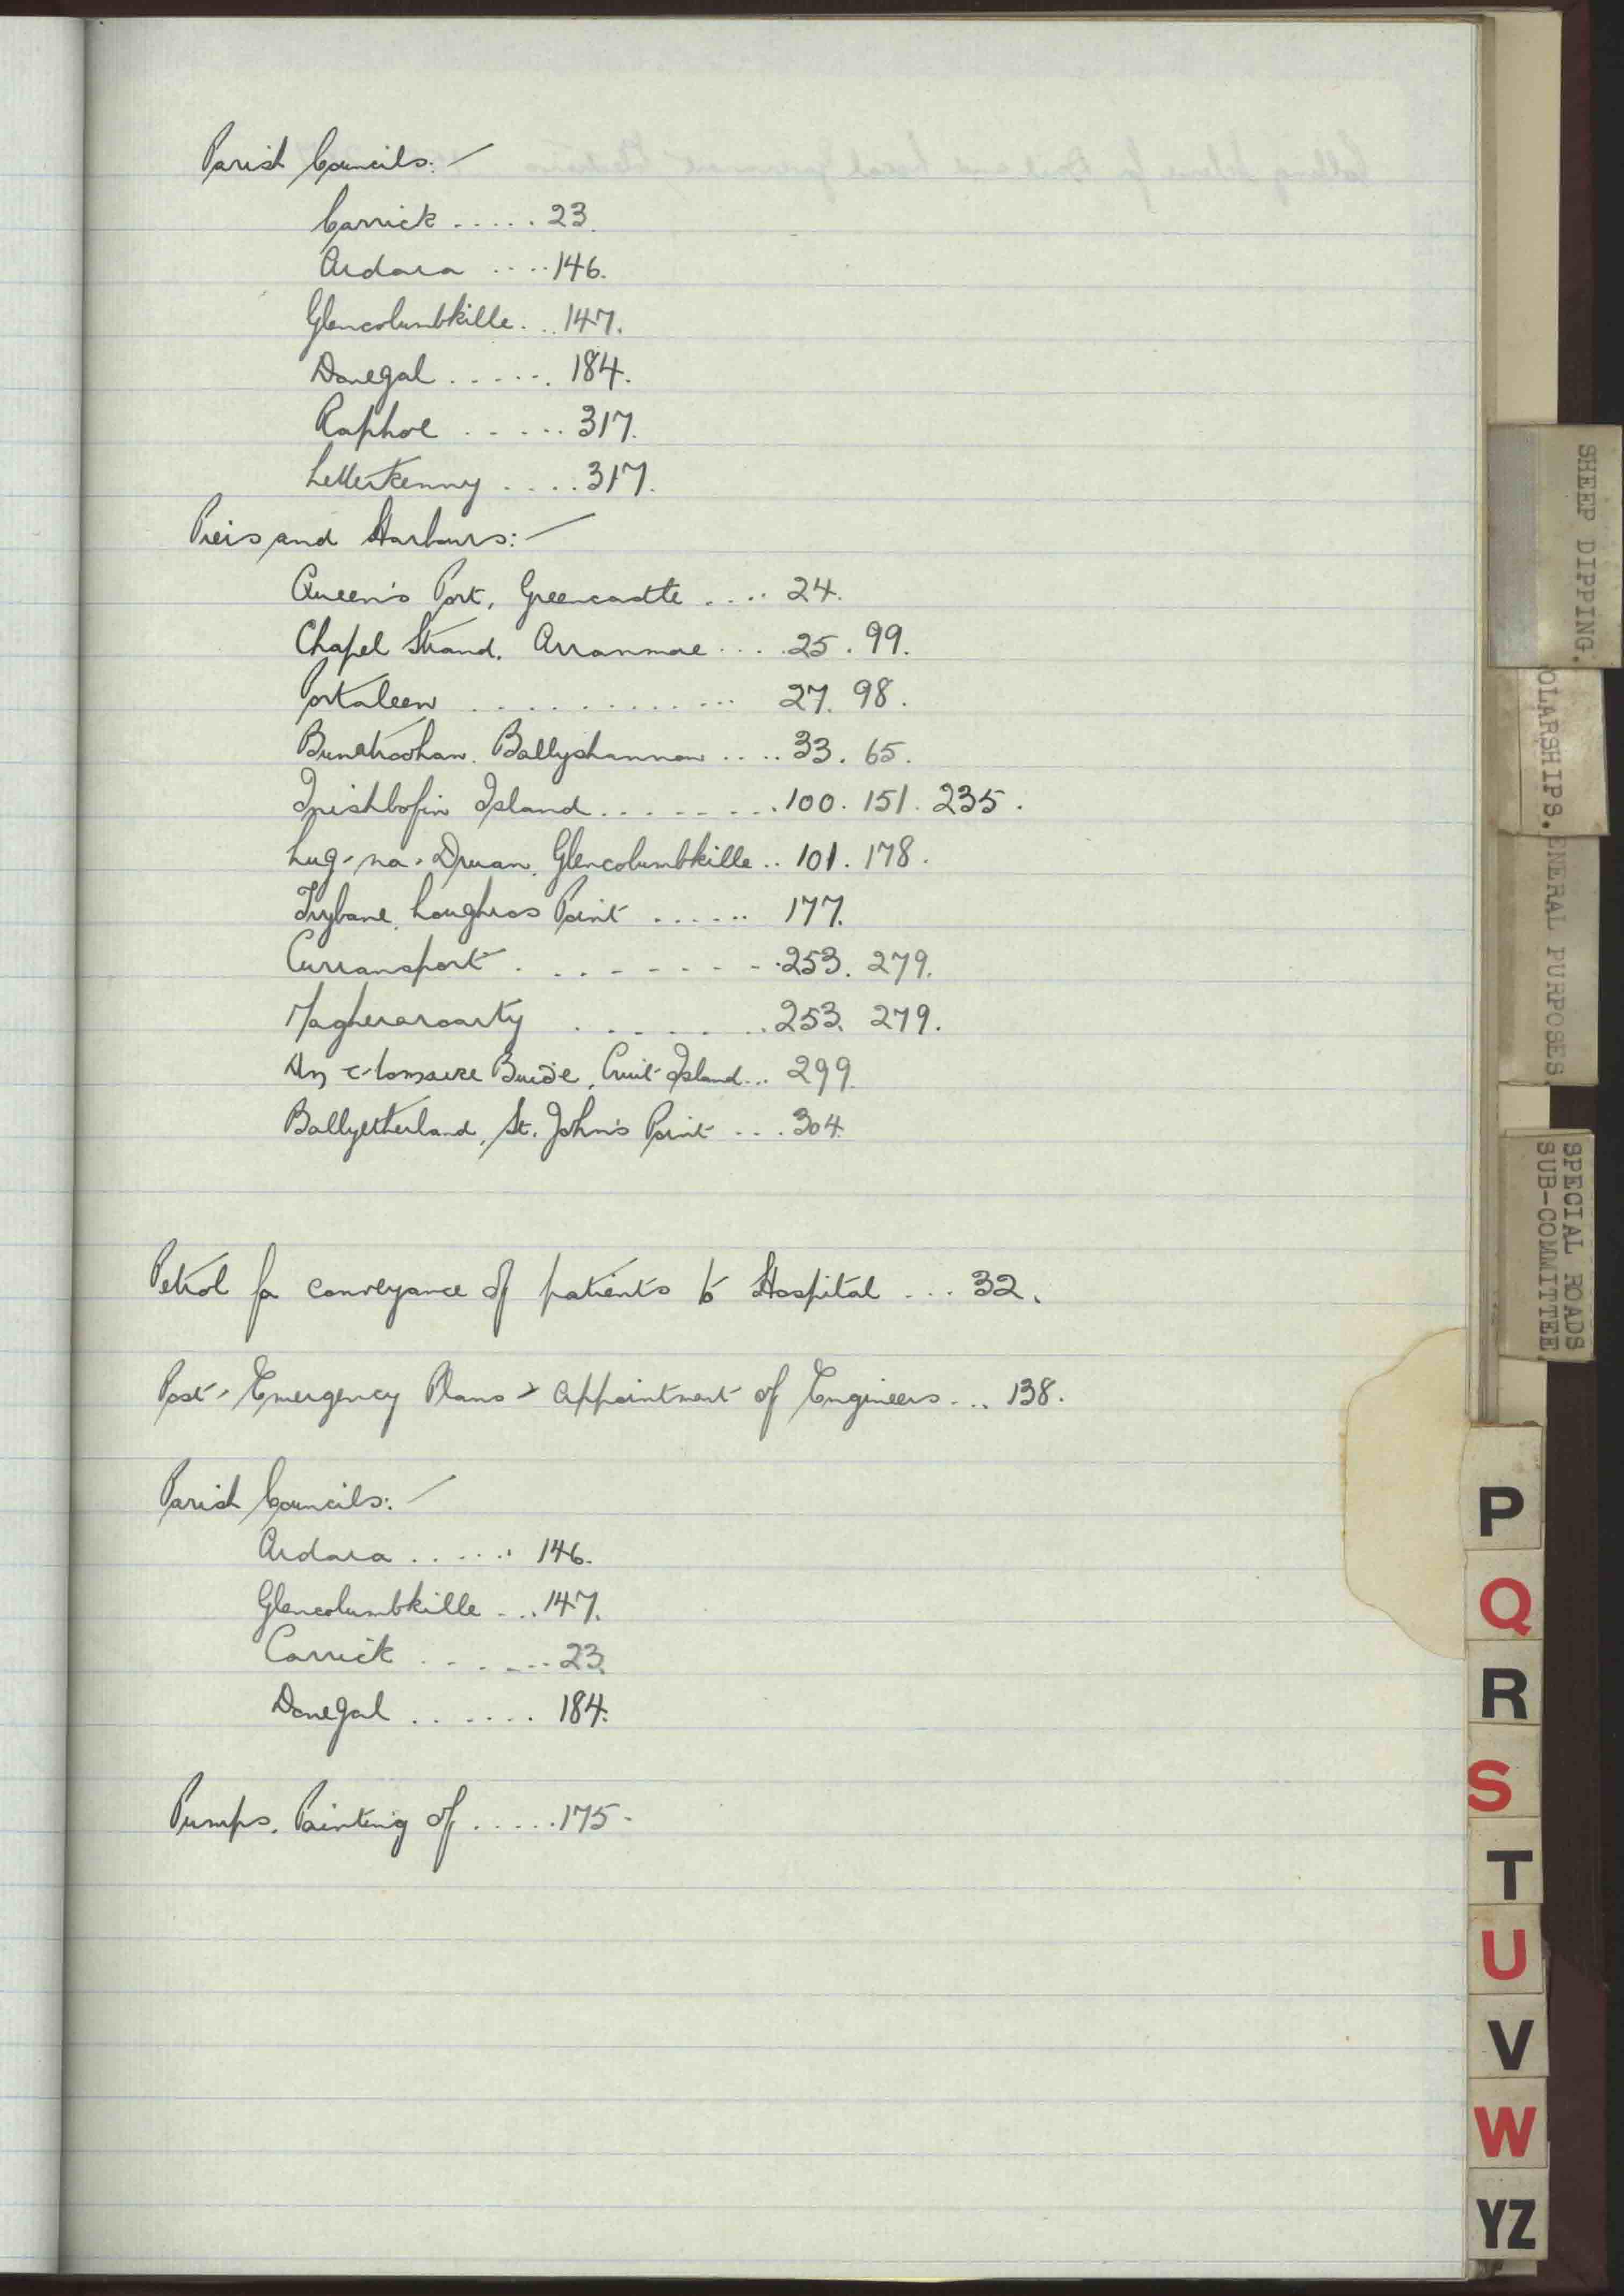 Parish Councils:-
Carrick ..... 23.
Ardara .... 146.
Glencolumbkille... 147.
Donegal ...... 184.
Raphoe ..... 317.
Letterkenny .... 317.
Piers and Harbours:-
Queen's Port, Greencastle .... 24.
Chapel Strand, Arranmore .... 25. 99.
Portaleen ............ 27. 98.
Bunatroohan, Ballyshannon ..... 33. 65.
Inishbofin Island ........ 100. 151. 235.
Lug-na-Druan, Glencolumbkille .. 101. 178.
Trybane, Loughros Point ...... 177.
Curransport ......... 253. 279.
Magheraroarty ....... 253. 279.
Buiḋe, Cruit Island... 299.
Ballyetherland, St. John's Point .... 304.
Petrol for conveyance of patients to Hospital ... 32.
Post-Emergency Plans - Appointment of Engineers ... 138.
Parish Councils:-
Ardara ...... 146.
Glencolumbkille .... 147.
Carrick ....... 23.
Donegal ....... 184.
Pumps, Painting of ..... 175.
SHEEP DIPPING.
OLARSHIPS.
ENERAL PURPOSES.
SPECIAL ROADS
SUB-COMMITTEE.
P
Q
R
S
T
U
V
W
YZ